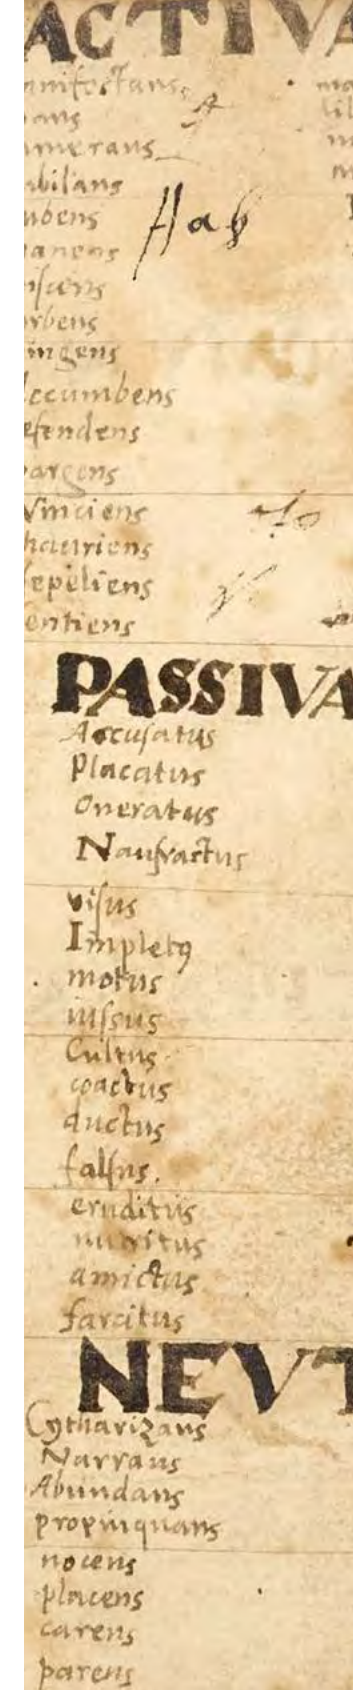 ACTIVA
anifestans
ans
merans
ubilans
ubens
Hab
anens
iscens
rbens
ingens
ccumbens
efendens
argens
Vinciens
hauriens
sepeliens
entiens
PASSIVA
Accusatus
Placatus
Oneratus
Naufractus
visus
Impletꝯ
motus
iussus
Cultus
coactus
ductus
falsus.
eruditus
nutritus
amictus
farcitus
NEVT
Cytharizans
Narrans
Abundans
propinquans
nocens
placens
carens
parens